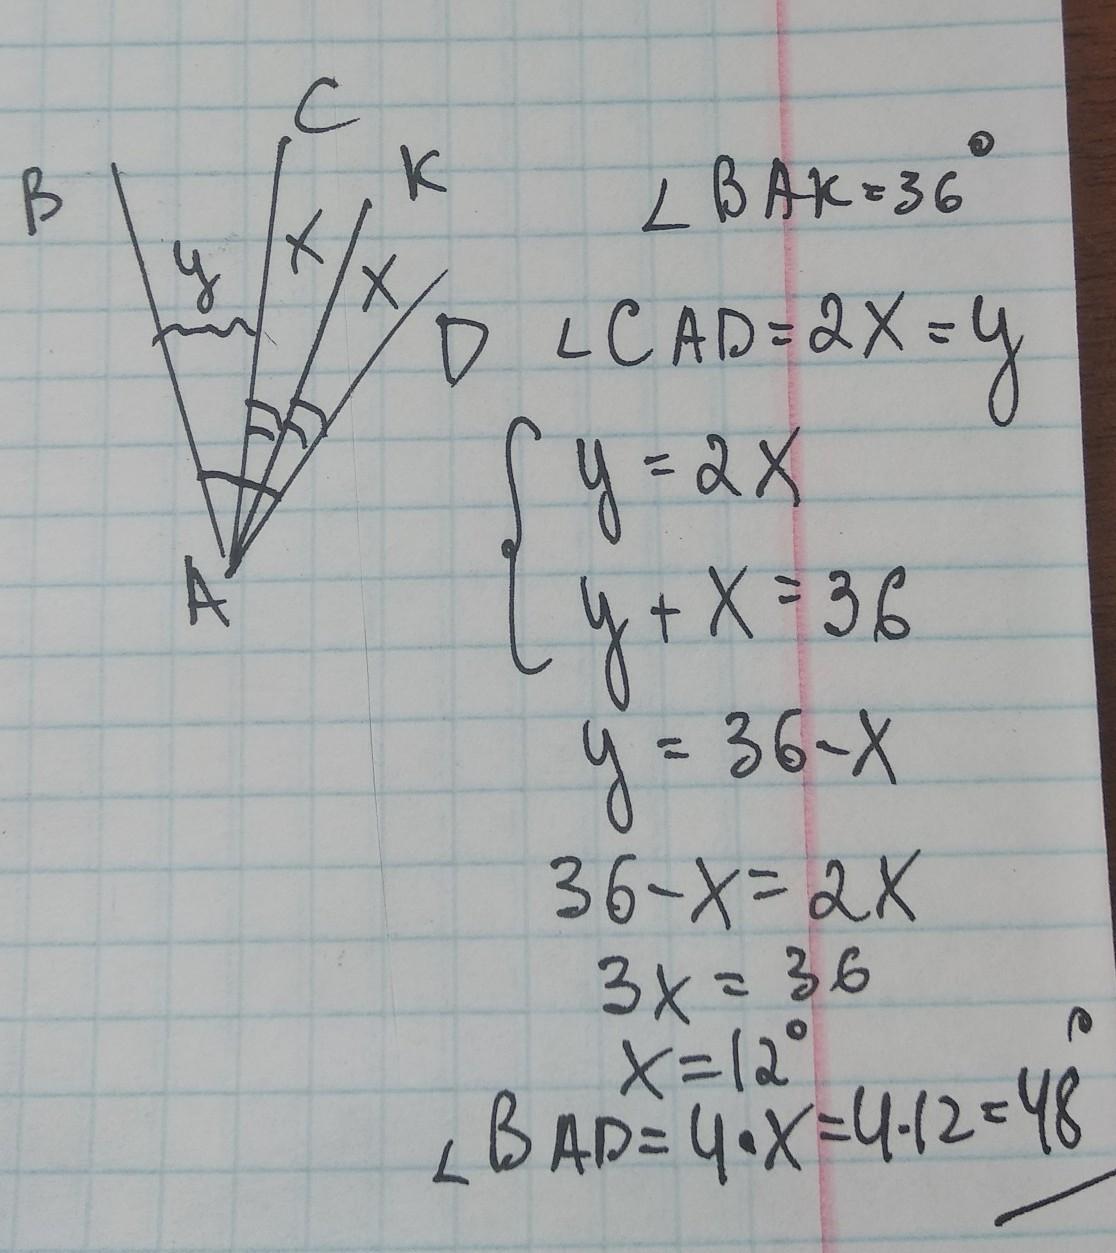 C
B
K
y
x
x
D
A
∠BAK=36°
∠CAD=2x=y
y=2x
y+x=36
y=36-x
36-x=2x
3x=36
x=12°
∠BAD=4·x=4·12=48°